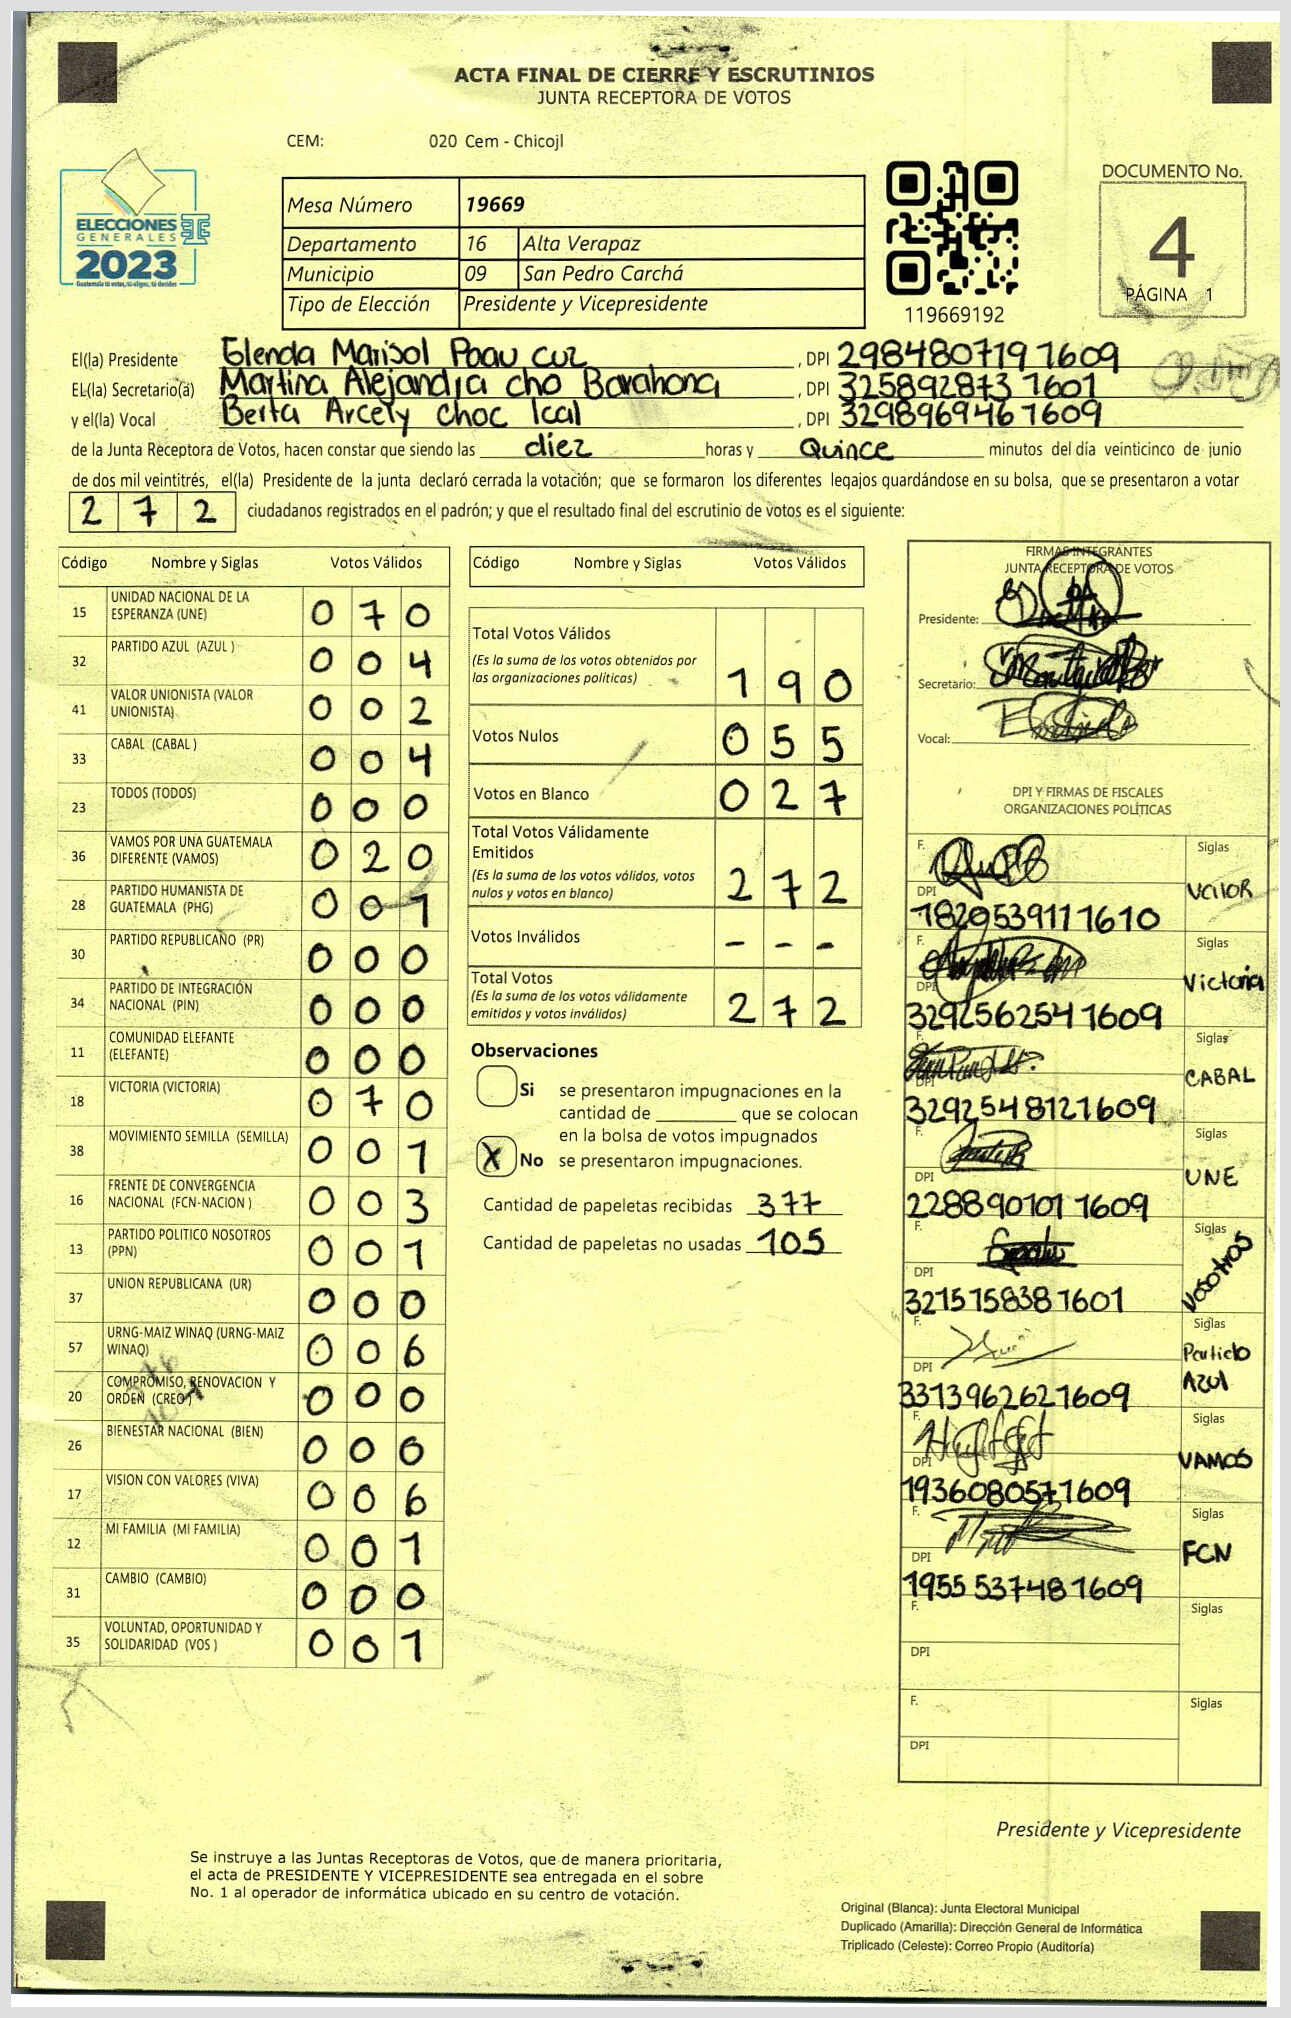 ACTA FINAL DE CIERRE Y ESCRUTINIOS
JUNTA RECEPTORA DE VOTOS
CEM: 020 Cem - Chicojl
ELECCIONES
GENERALES
2023
Guatemala tú votas, tú eliges, tú decides
Mesa Número 19669
Departamento 16 Alta Verapaz
Municipio 09 San Pedro Carchá
Tipo de Elección Presidente y Vicepresidente
119669192
DOCUMENTO No.
4
PÁGINA 1
El(la) Presidente Glenda Marisol Paau cuz , DPI 2984807191609
EL(la) Secretario(a) Martina Alejandra cho Barahona , DPI 3258928731601
y el(la) Vocal Berta Arcely choc Ical , DPI 3298969461609
de la Junta Receptora de Votos, hacen constar que siendo las diez horas y Quince minutos del día veinticinco de junio
de dos mil veintitrés, el(la) Presidente de la junta declaró cerrada la votación; que se formaron los diferentes legajos guardándose en su bolsa, que se presentaron a votar
272 ciudadanos registrados en el padrón; y que el resultado final del escrutinio de votos es el siguiente:
Código Nombre y Siglas Votos Válidos
15 UNIDAD NACIONAL DE LA ESPERANZA (UNE) 070
32 PARTIDO AZUL (AZUL ) 004
41 VALOR UNIONISTA (VALOR UNIONISTA) 002
33 CABAL (CABAL ) 004
23 TODOS (TODOS) 000
36 VAMOS POR UNA GUATEMALA DIFERENTE (VAMOS) 020
28 PARTIDO HUMANISTA DE GUATEMALA (PHG) 001
30 PARTIDO REPUBLICANO (PR) 000
34 PARTIDO DE INTEGRACIÓN NACIONAL (PIN) 000
11 COMUNIDAD ELEFANTE (ELEFANTE) 000
18 VICTORIA (VICTORIA) 070
38 MOVIMIENTO SEMILLA (SEMILLA) 001
16 FRENTE DE CONVERGENCIA NACIONAL (FCN-NACION ) 003
13 PARTIDO POLITICO NOSOTROS (PPN) 001
37 UNION REPUBLICANA (UR) 000
57 URNG-MAIZ WINAQ (URNG-MAIZ WINAQ) 006
20 COMPROMISO, RENOVACION Y ORDEN (CREO ) 000
26 BIENESTAR NACIONAL (BIEN) 000
17 VISION CON VALORES (VIVA) 006
12 MI FAMILIA (MI FAMILIA) 001
31 CAMBIO (CAMBIO) 000
35 VOLUNTAD, OPORTUNIDAD Y SOLIDARIDAD (VOS ) 001
Código Nombre y Siglas Votos Válidos
Total Votos Válidos
(Es la suma de los votos obtenidos por
las organizaciones politicas) 190
Votos Nulos 055
Votos en Blanco 027
Total Votos Válidamente
Emitidos
(Es la suma de los votos válidos, votos
nulos y votos en blanco) 272
Votos Inválidos - - -
Total Votos
(Es la suma de los votos válidamente
emitidos y votos inválidos) 272
Observaciones
Si se presentaron impugnaciones en la
cantidad de ________ que se colocan
en la bolsa de votos impugnados
X No se presentaron impugnaciones.
Cantidad de papeletas recibidas 377
Cantidad de papeletas no usadas 105
FIRMAS INTEGRANTES
JUNTA RECEPTORA DE VOTOS
Presidente:
Secretario:
Vocal:
DPI Y FIRMAS DE FISCALES
ORGANIZACIONES POLÍTICAS
F. Siglas
DPI 1820539111610 Valor
F. Siglas
DPI 3292562541609 Victoria
F. Siglas
DPI 3292548121609 CABAL
F. Siglas
DPI 2288901011609 UNE
F. Siglas
DPI 3215158381601 Nosotros
F. Siglas
DPI 3313962621609 Partido Azul
F. Siglas
DPI 1936080571609 VAMOS
F. Siglas
DPI 1955537481609 FCN
F. Siglas
DPI
F. Siglas
DPI
Presidente y Vicepresidente
Se instruye a las Juntas Receptoras de Votos, que de manera prioritaria,
el acta de PRESIDENTE Y VICEPRESIDENTE sea entregada en el sobre
No. 1 al operador de informática ubicado en su centro de votación.
Original (Blanca): Junta Electoral Municipal
Duplicado (Amarilla): Dirección General de Informática
Triplicado (Celeste): Correo Propio (Auditoría)